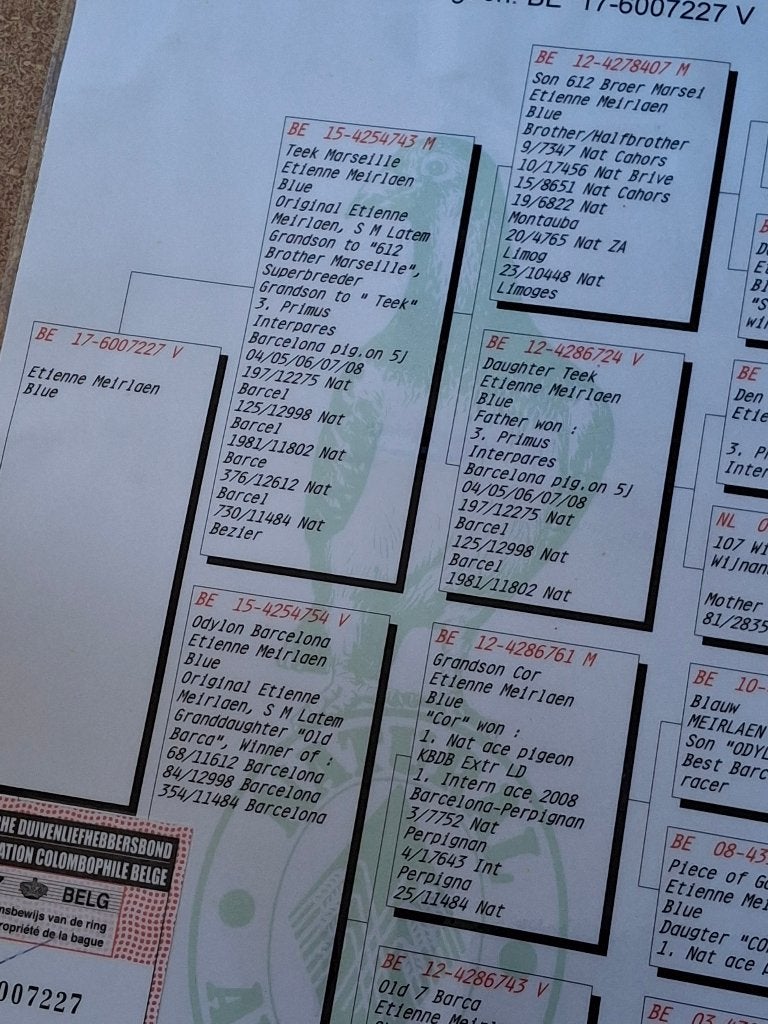 BE 17-6007227 V
BE 17-6007227 V
Etienne Meirlaen
Blue
BE 15-4254743 M
Teek Marseille
Etienne Meirlaen
Blue
Original Etienne
Meirlaen, S M Latem
Grandson to "612
Brother Marseille",
Superbreeder
Grandson to " Teek"
3. Primus
Interpares
Barcelona pig.on 5J
04/05/06/07/08
197/12275 Nat
Barcel
125/12998 Nat
Barcel
1981/11802 Nat
Barce
376/12612 Nat
Barcel
730/11484 Nat
Bezier
BE 15-4254754 V
Odylon Barcelona
Etienne Meirlaen
Blue
Original Etienne
Meirlaen, S M Latem
Granddaughter "Old
Barca", Winner of :
68/11612 Barcelona
84/12998 Barcelona
354/11484 Barcelona
BE 12-4278407 M
Son 612 Broer Marsei
Etienne Meirlaen
Blue
Brother/Halfbrother
9/7347 Nat Cahors
10/17456 Nat Brive
15/8651 Nat Cahors
19/6822 Nat
Montauba
20/4765 Nat ZA
Limog
23/10448 Nat
Limoges
BE 12-4286724 V
Daughter Teek
Etienne Meirlaen
Blue
Father won :
3. Primus
Interpares
Barcelona pig.on 5J
04/05/06/07/08
197/12275 Nat
Barcel
125/12998 Nat
Barcel
1981/11802 Nat
BE 12-4286761 M
Grandson Cor
Etienne Meirlaen
Blue
"Cor" won :
1. Nat ace pigeon
KBDB Extr LD
1. Intern ace 2008
Barcelona-Perpignan
3/7752 Nat
Perpignan
4/17643 Int
Perpigna
25/11484 Nat
BE 12-4286743 V
Old 7 Barca
Etienne Meirlaen
BE
Den
3. P
Inter
NL 0
107 Wi
Wijnan
Mother
81/2835
BE 10-
Blauw
MEIRLAEN
Son "ODYL
Best Barc
racer
BE 08-43
Piece of Go
Etienne Mei
Blue
Daugter "CO
1. Nat ace p
BE 03-
Etienne
HE DUIVENLIEFHEBBERSBOND
ATION COLOMBOPHILE BELGE
BELG
nsbewijs van de ring
ropriété de la bague
007227